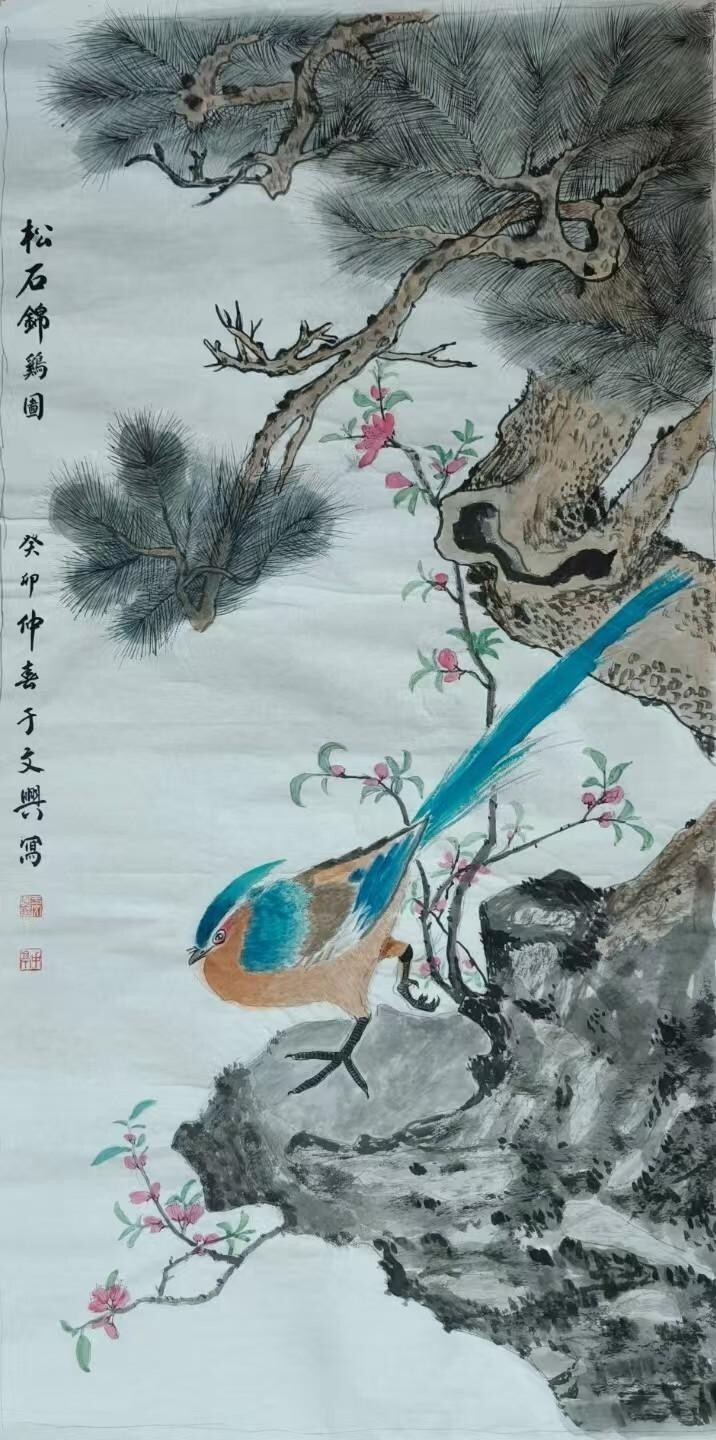 松石錦鷄圖
癸卯仲春于文興寫